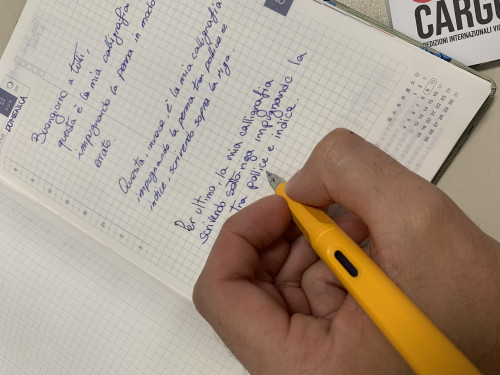 Buongiorno a tutti,
questa è la mia calligrafia
impugnando la penna in modo
errato.
Questa, invece, è la mia calligrafia
impugnando la penna tra pollice e
indice, scrivendo sopra la riga.
Per ultimo, la mia calligrafia
scrivendo sotto riga impugnando la
tra pollice e indice.
DOMENICA
CARGO
SPEDIZIONI INTERNAZIONALI VI